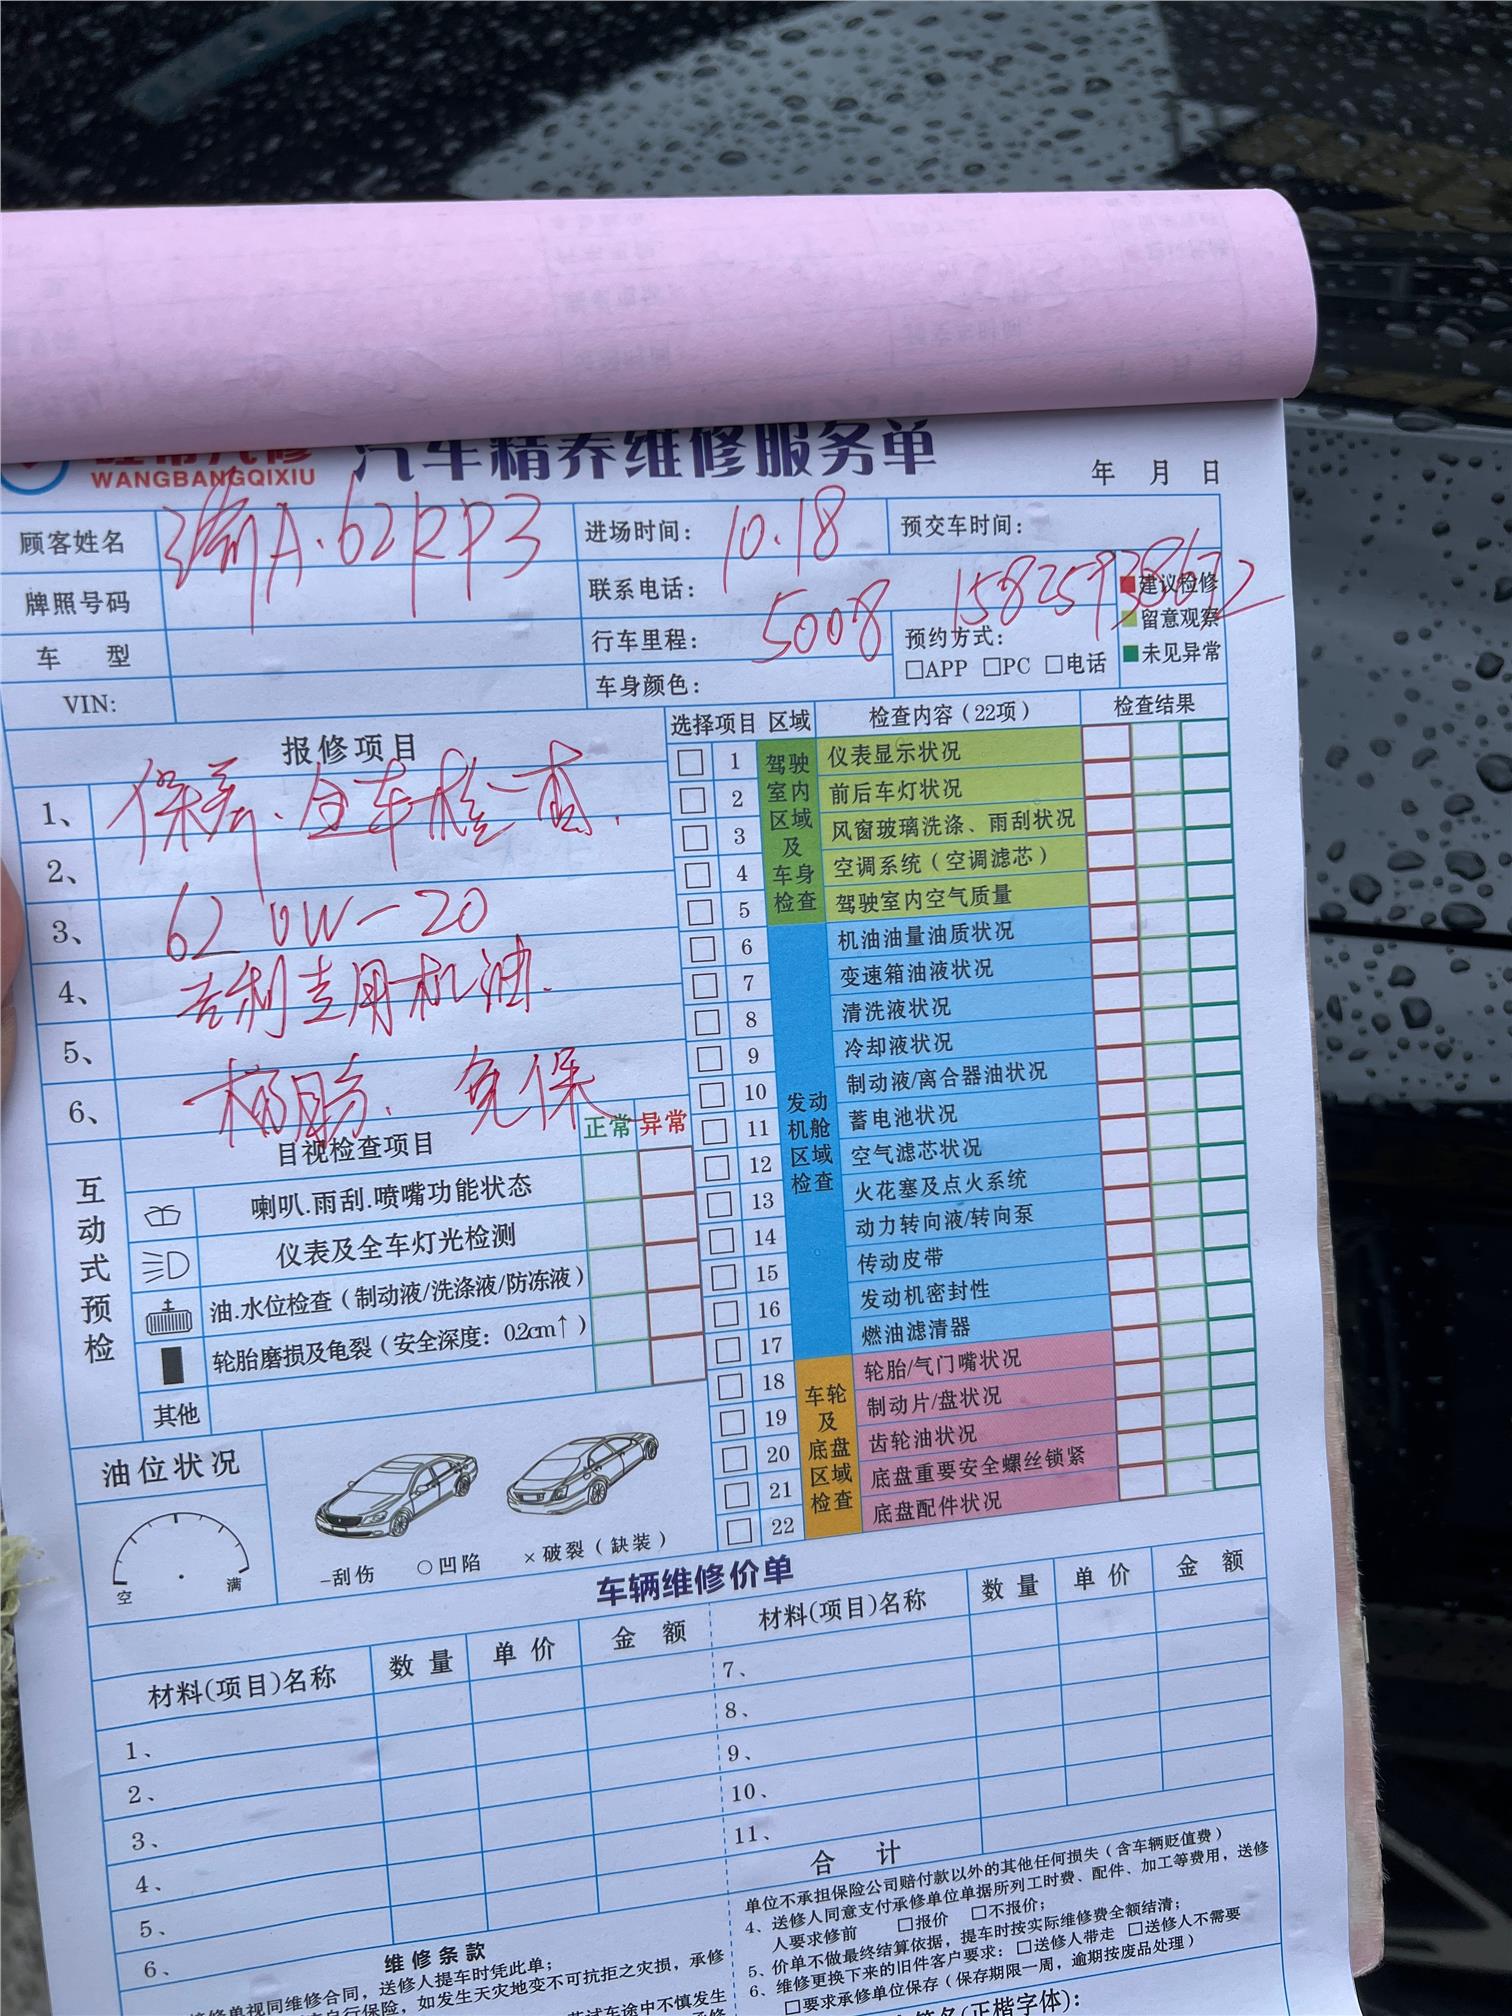 汽车精养维修服务单
WANGBANGQIXIU
年 月 日
顾客姓名 渝A·62RP3 进场时间: 10.18 预交车时间:
牌照号码 联系电话: 15825938672
建议检修
留意观察
未见异常
车 型 行车里程: 5008 预约方式:
□APP □PC □电话
VIN: 车身颜色:
报修项目
1、 保养、全车检查.
2、
3、 62 0W-20
4、 吉利专用机油.
5、
6、 免保
互动式预检
目视检查项目 正常 异常
喇叭.雨刮.喷嘴功能状态
仪表及全车灯光检测
油.水位检查(制动液/洗涤液/防冻液)
轮胎磨损及龟裂(安全深度: 0.2cm↑)
其他
油位状况
空 满
-刮伤 ○凹陷 ×破裂(缺装)
选择项目 区域 检查内容(22项) 检查结果
驾驶室内区域及车身检查
1 仪表显示状况
2 前后车灯状况
3 风窗玻璃洗涤、雨刮状况
4 空调系统(空调滤芯)
5 驾驶室内空气质量
发动机舱区域检查
6 机油油量油质状况
7 变速箱油液状况
8 清洗液状况
9 冷却液状况
10 制动液/离合器油状况
11 蓄电池状况
12 空气滤芯状况
13 火花塞及点火系统
14 动力转向液/转向泵
15 传动皮带
16 发动机密封性
17 燃油滤清器
车轮及底盘区域检查
18 轮胎/气门嘴状况
19 制动片/盘状况
20 齿轮油状况
21 底盘重要安全螺丝锁紧
22 底盘配件状况
车辆维修价单
材料(项目)名称 数量 单价 金额 材料(项目)名称 数量 单价 金额
1、 7、
2、 8、
3、 9、
4、 10、
5、 11、
6、 合 计
维修条款
接修单视同维修合同，送修人提车时凭此单;
自行保险，如发生天灾地变不可抗拒之灾损，承修
试车途中不慎发生
单位不承担保险公司赔付款以外的其他任何损失(含车辆贬值费)
4、送修人同意支付承修单位单据所列工时费、配件、加工等费用，送修
人要求修前 □报价 □不报价;
5、价单不做最终结算依据，提车时按实际维修费全额结清;
6、维修更换下来的旧件客户要求: □送修人带走 □送修人不需要
□要求承修单位保存(保存期限一周，逾期按废品处理)
签名(正楷字体):